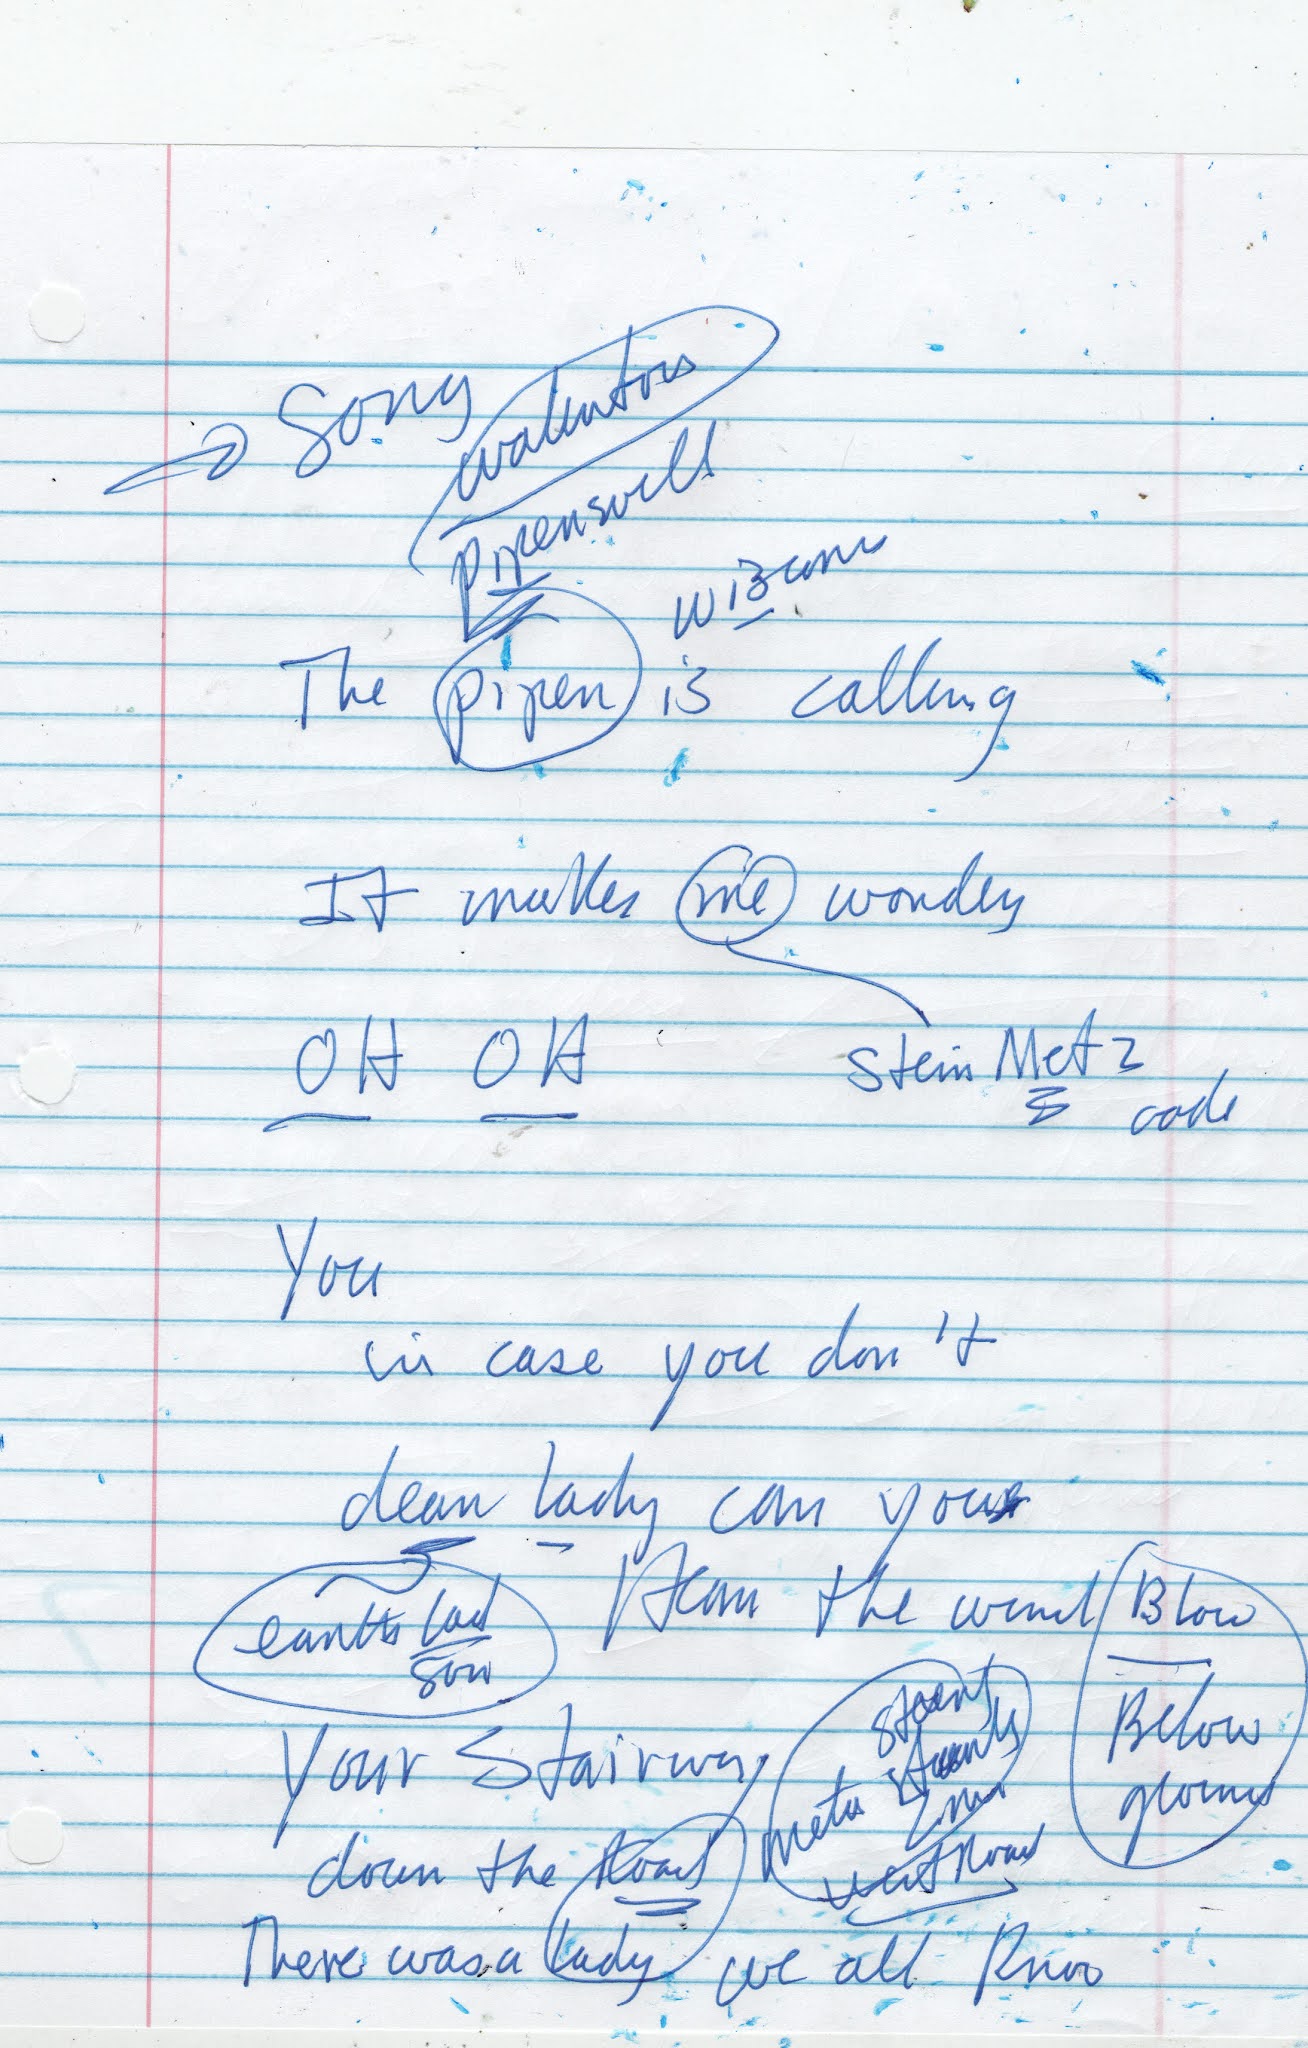 Song
pipenswell
The pipen is calling
It makes me wonder
OH OH
Stein Metz
code
You
in case you don't
dear lady can you
Hear the wind Blow
earth lad
son
Below
ground
Your Stairway
meta
West Road
down the Road
There was a lady we all Know